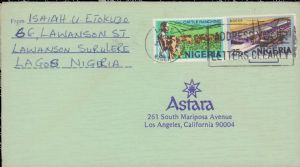 From: ISAIAH U. ETOKUDO
66, LAWANSON ST
LAWANSON SURULERE
LAGOS NIGERIA.
CATTLE RANCHING
NIGERIA
DOCKS
NIGERIA
ADDRESS YOUR
LETTERS CLEARLY
Astara
261 South Mariposa Avenue
Los Angeles, California 90004